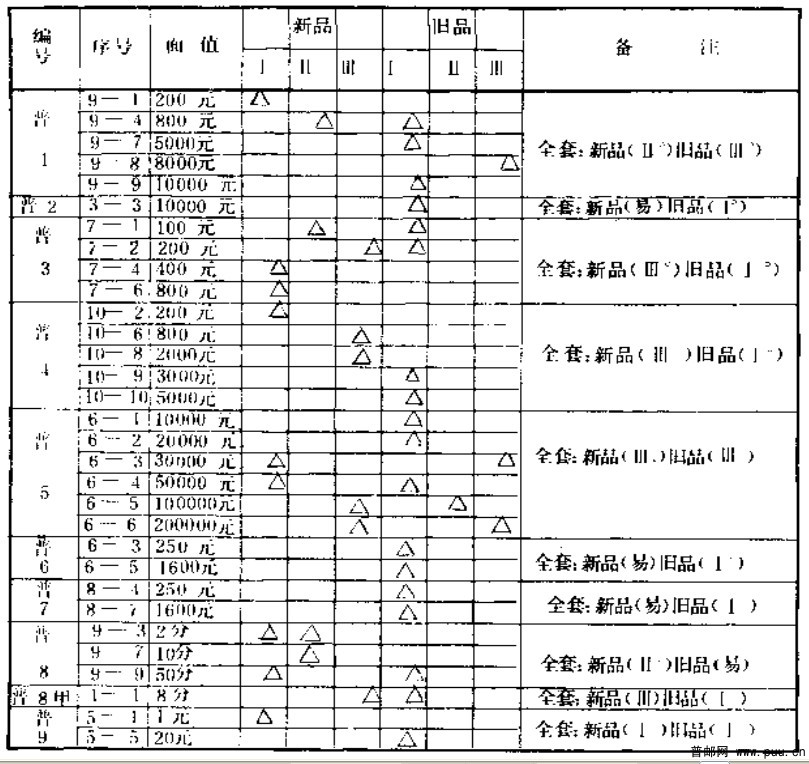 编号 序号 面值 新品 旧品 备注
Ⅰ Ⅱ Ⅲ Ⅰ Ⅱ Ⅲ
普1 9—1 200元 △
9—4 800元 △ △
9—7 5000元 △
全套:新品(Ⅱ°)旧品(Ⅲ°)
9—8 8000元 △
9—9 10000元 △
普2 3—3 10000元 △ 全套:新品(易)旧品(Ⅰ°)
普3 7—1 100元 △ △
7—2 200元 △ △
全套:新品(Ⅲ°)旧品(Ⅰ°)
7—4 400元 △
7—6 800元 △
普4 10—2 200元 △
10—6 800元 △
10—8 2000元 △
全套:新品(Ⅲ)旧品(Ⅰ)
10—9 3000元 △
10—10 5000元 △
普5 6—1 10000元 △
6—2 20000元 △
6—3 30000元 △ △
全套:新品(Ⅲ)旧品(Ⅲ)
6—4 50000元 △ △
6—5 100000元 △ △
6—6 200000元 △ △
普6 6—3 250元 △
全套:新品(易)旧品(Ⅰ)
6—5 1600元 △
普7 8—4 250元 △
全套:新品(易)旧品(Ⅰ)
8—7 1600元 △
普8 9—3 2分 △ △
9—7 10分 △
全套:新品(Ⅱ)旧品(易)
9—9 50分 △ △
普8甲 1—1 8分 △ △ 全套:新品(Ⅲ)旧品(Ⅰ)
普9 5—1 1元 △
全套:新品(Ⅰ)旧品(Ⅰ)
5—5 20元 △
普邮网 www.puu.cn